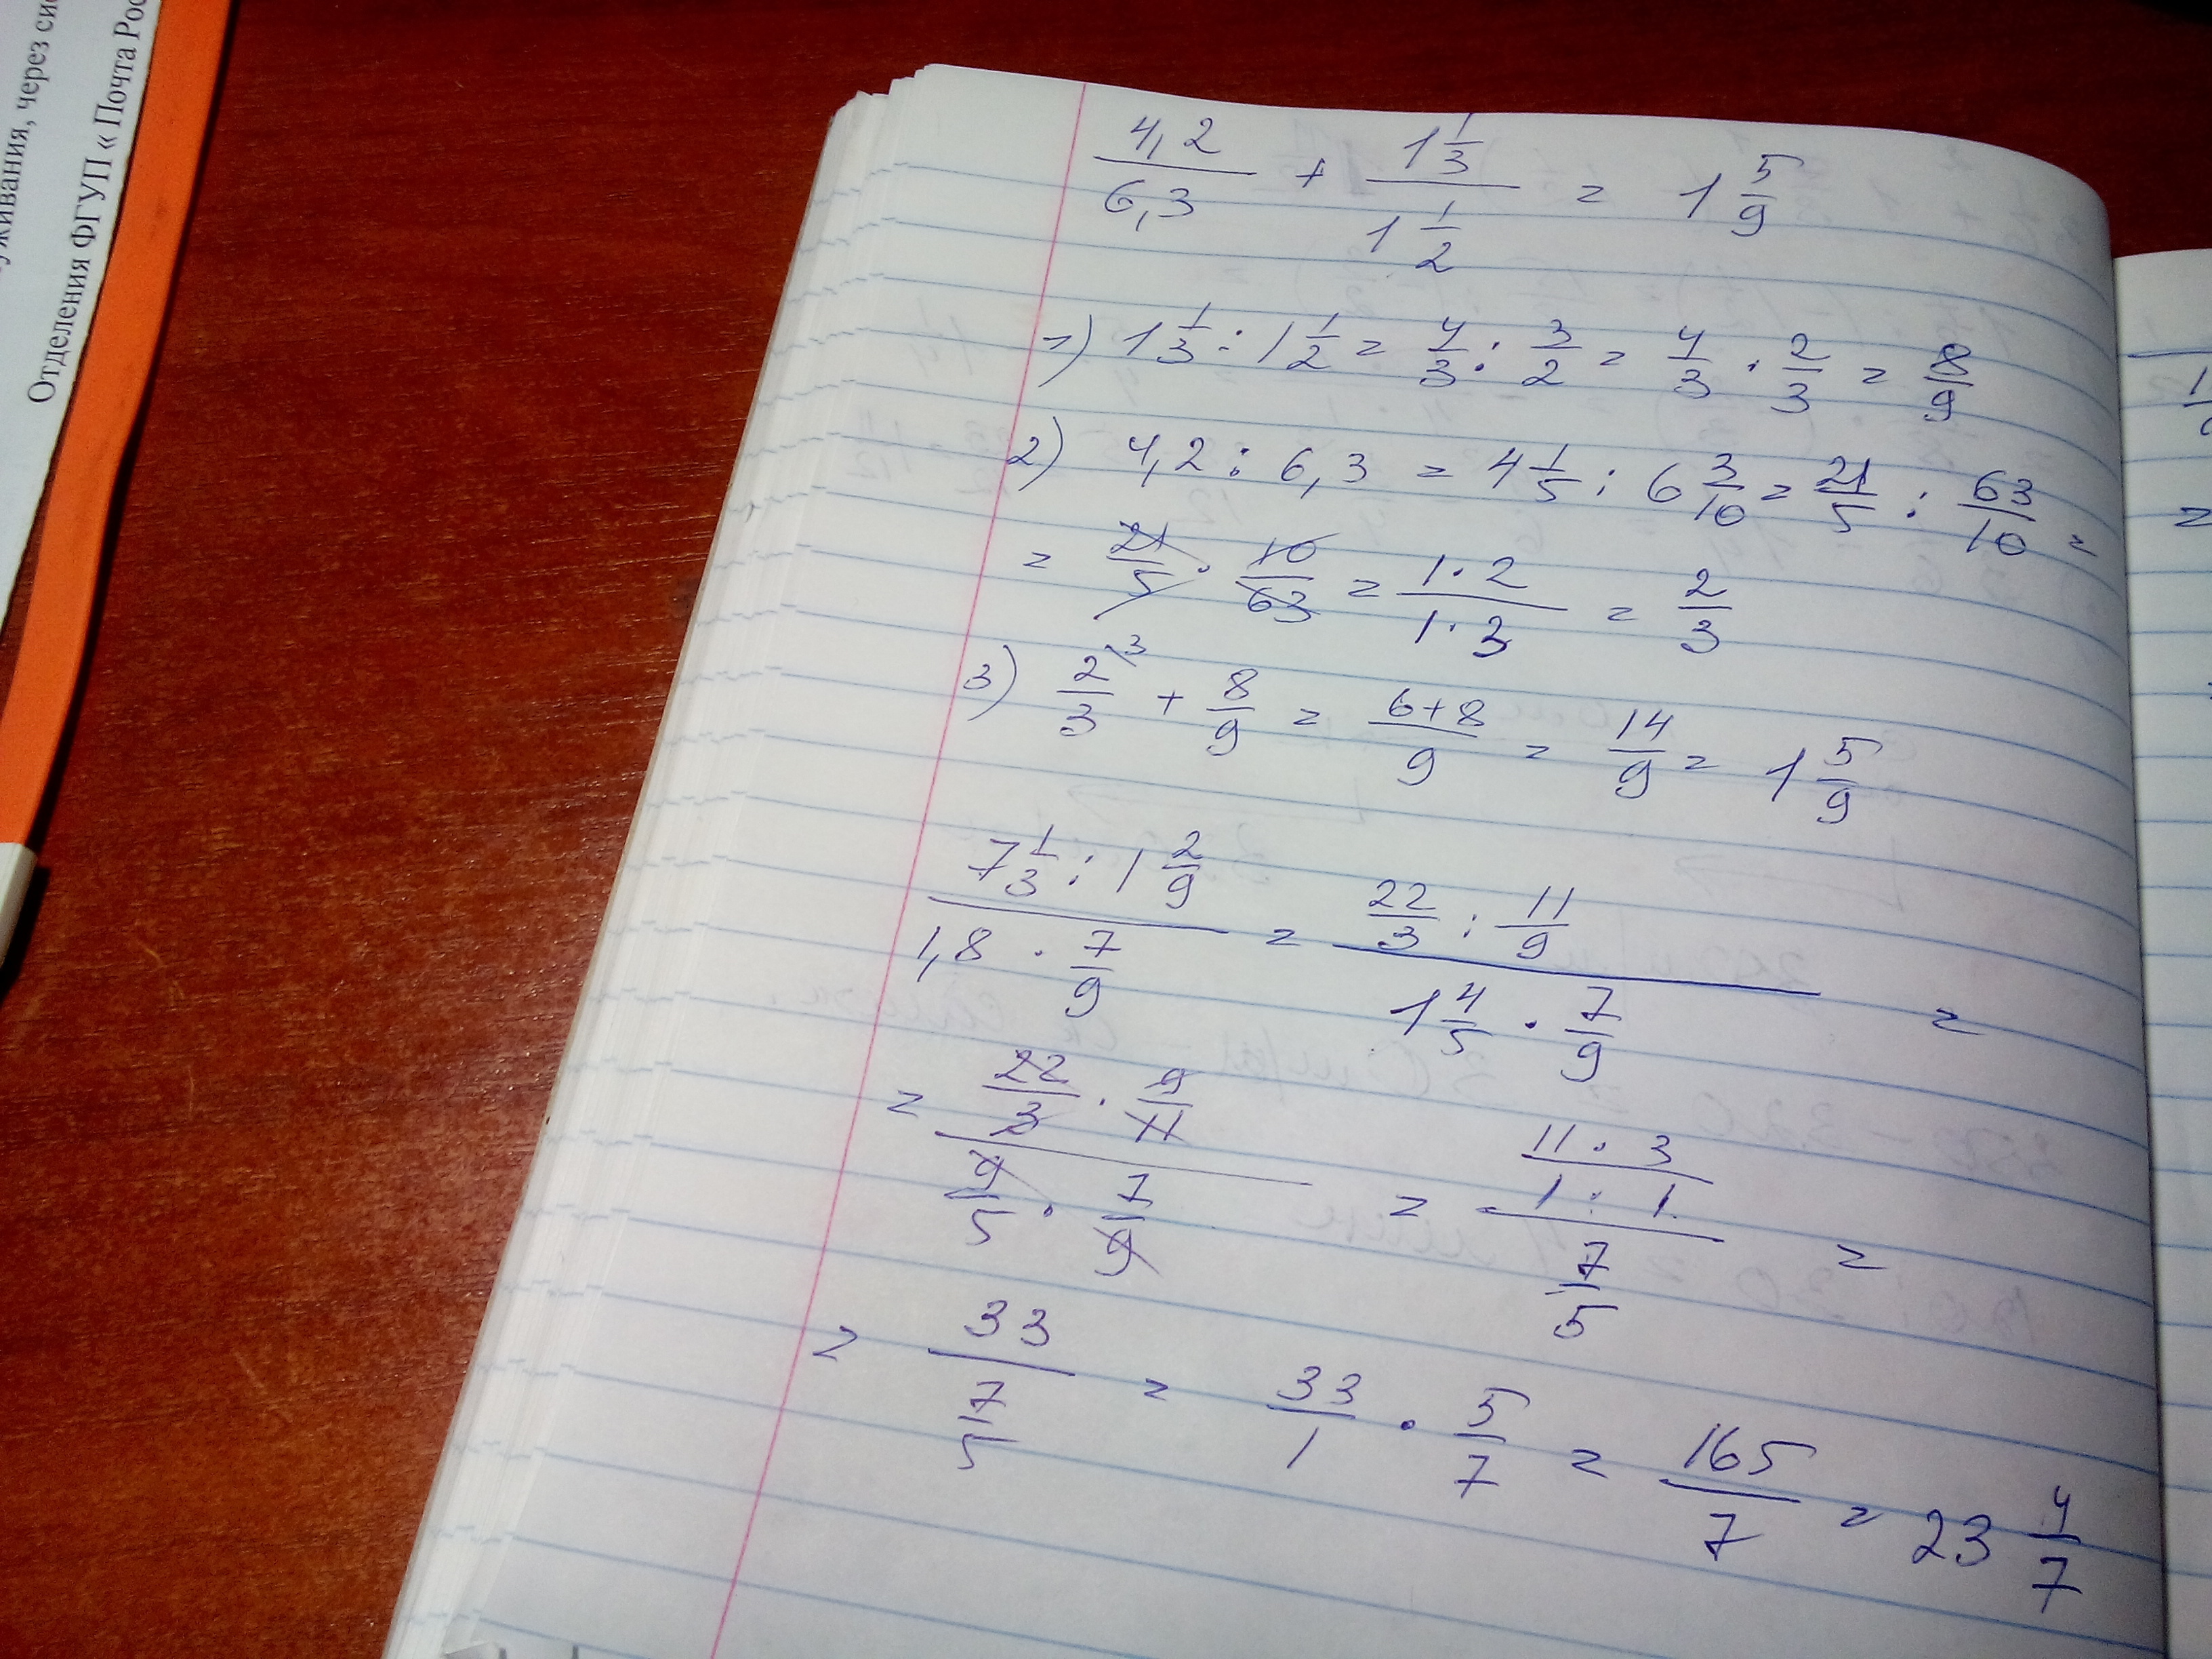 уживания, через
Отделения ФГУП « Почта
4,2/6,3 + 1 1/3 / 1 1/2 = 1 5/9
1) 1 1/3 : 1 1/2 = 4/3 : 3/2 = 4/3 · 2/3 = 8/9
2) 4,2 : 6,3 = 4 1/5 : 6 3/10 = 21/5 : 63/10 =
= 21/5 · 10/63 = 1·2/1·3 = 2/3
3) 2/3 \3 + 8/9 = 6+8/9 = 14/9 = 1 5/9
7 1/3 : 1 2/9 / 1,8 · 7/9 = 22/3 : 11/9 / 1 4/5 · 7/9 =
= 22/3 · 9/11 / 9/5 · 7/9 = 11·3/1:1 / 7/5 =
= 33 / 7/5 = 33/1 · 5/7 = 165/7 = 23 4/7